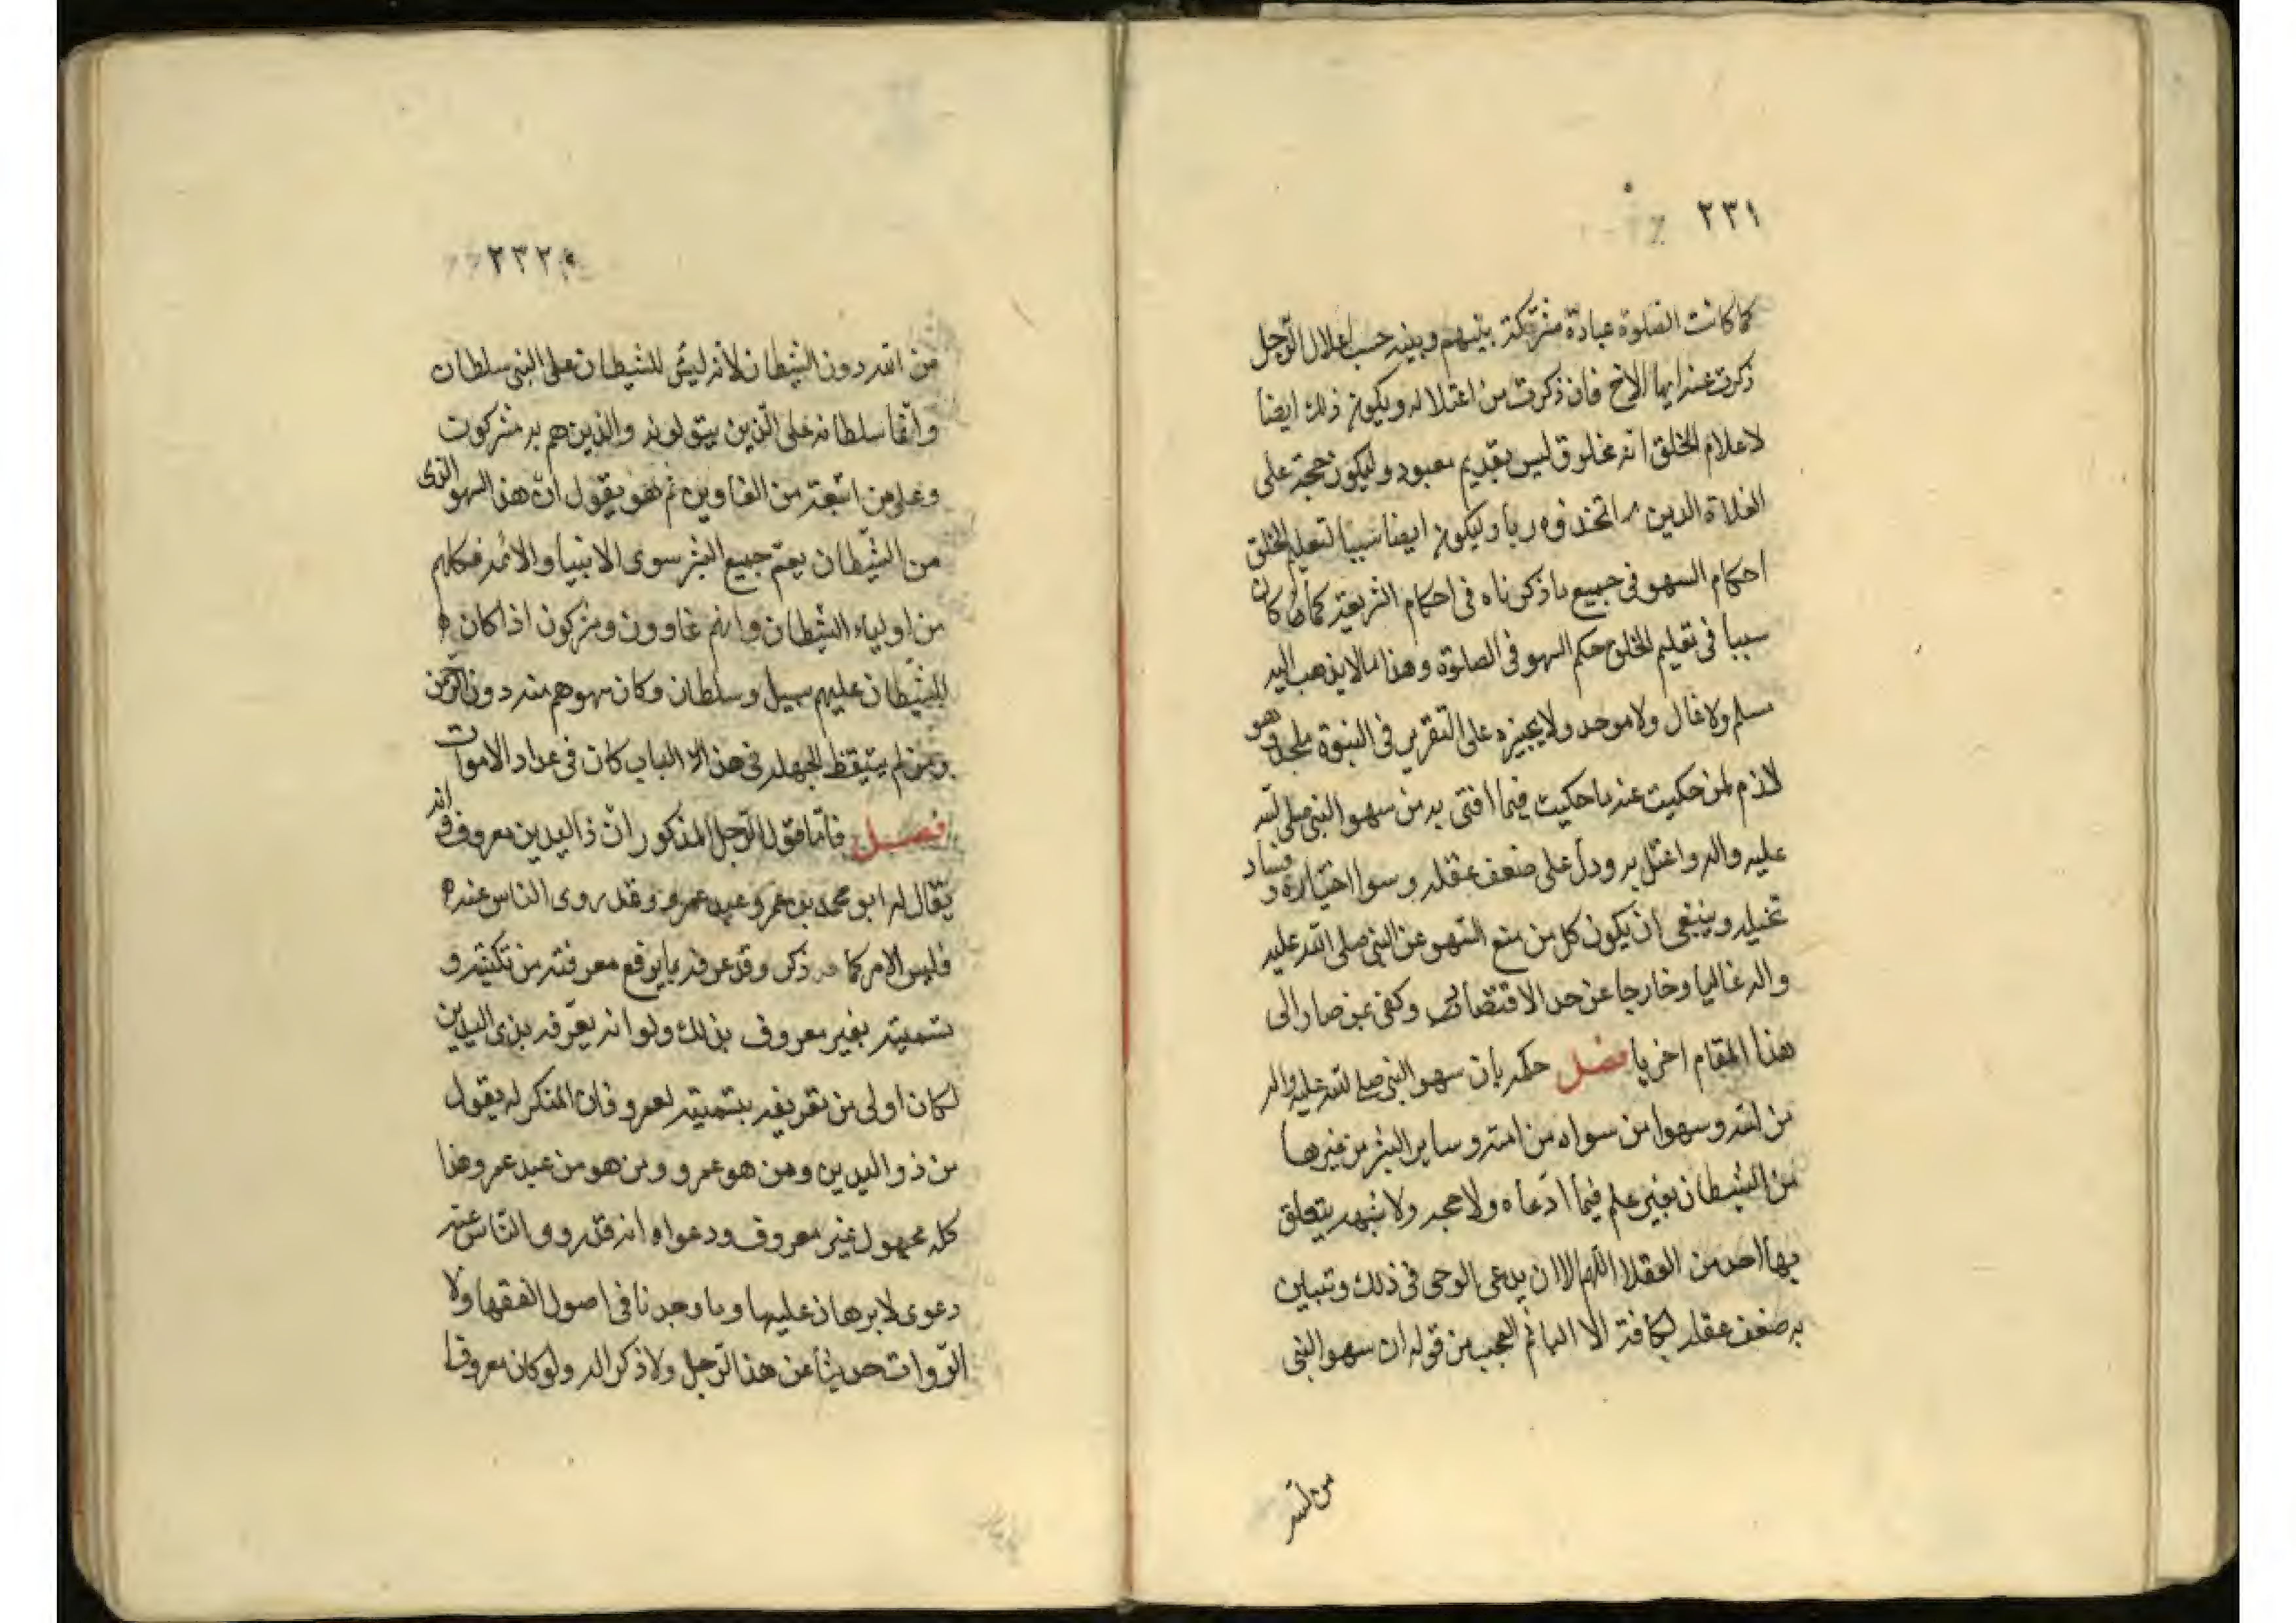 ٢٣١
كما كانت الصلوة عبادة مشتركة بينهم وبينه حسب اعلال الرجل
ذكرت عنه ايها الاخ فان ذكرت من اعتلاله ويكون ذلك ايضا
لاعلام الخلق انه مخلوق ليس بقديم معبود وليكون حجة على
الغلاة الدين اتخذوه ربا وليكون ايضا سببا لتعليم الخلق
احكام السهو في جميع ما ذكرناه في احكام الشريعة كما كان
سببا في تعليم الخلق حكم السهو في الصلوة وهذا ما لا يذهب اليه
مسلم ولا غال ولا موحد ولا يجيزه على التقرير في النبوة ملحد وهو
لازم لمن حكيت عنه ما حكيت فيما افتى به من سهو النبي صلى الله
عليه واله واعتل به ودل على ضعف عقله وسوا اختياره وفساد
تخيله وينبغي ان يكون كل من منع السهو عن النبي صلى الله عليه
واله غاليا وخارجا عن حد الاقتصاد وكفى بمن صار الى
هذا المقام اخزيا فصل حكمه بان سهو النبي صلى الله عليه واله
من الله وسهوا من سواه من امته وساير البشر من غيرها
من الشيطان بغير علم فيما ادعاه ولا حجه ولا شبهه يتعلق
بها احد من العقلا اللهم الا ان يدعى الوحى في ذلك وتبين
به ضعف عقله لكافة الالبا ثم العجب من قوله ان سهو النبي
من الله
٢٣٢
من الله دون الشيطان لانه ليس للشيطان على النبي سلطان
وانما سلطانه على الذين يتولونه والذين هم به مشركون
وعلى من اتبعه من الغاوين ثم هو يقول ان هذا السهو الذي
من الشيطان يعم جميع البشر سوى الانبيا والائمه فكلهم
من اولياء الشيطان وانهم غاوون ومشركون اذا كان
للشيطان عليهم سبيل وسلطان وكان سهوهم منه دون الرحمن
ومن لم يتيقظ لجهله في هذا الباب كان في عداد الاموات
فصل فاما قول الرجل المذكور ان ذا اليدين معروف وانه
يقال له ابو محمد بن عمرو عبد عمرو وقد روى الناس عنه
فليس الامر كما ذكر وقد عرفه بما يرفع معرفته من تكنيته و
تسميته بغير معروف بذلك ولو انه يعرفه بذى اليدين
لكان اولى من تعريفه بتسميته بعمرو فان المنكر له يقول
من ذو اليدين ومن هو عمرو ومن هو من عبد عمرو وهذا
كله مجهول غير معروف ودعواه انه قد روى الناس عنه
دعوى لا برهان عليها وما وجدنا في اصول الفقها ولا
الروات حديثا عن هذا الرجل ولا ذكرا له ولو كان معروفا